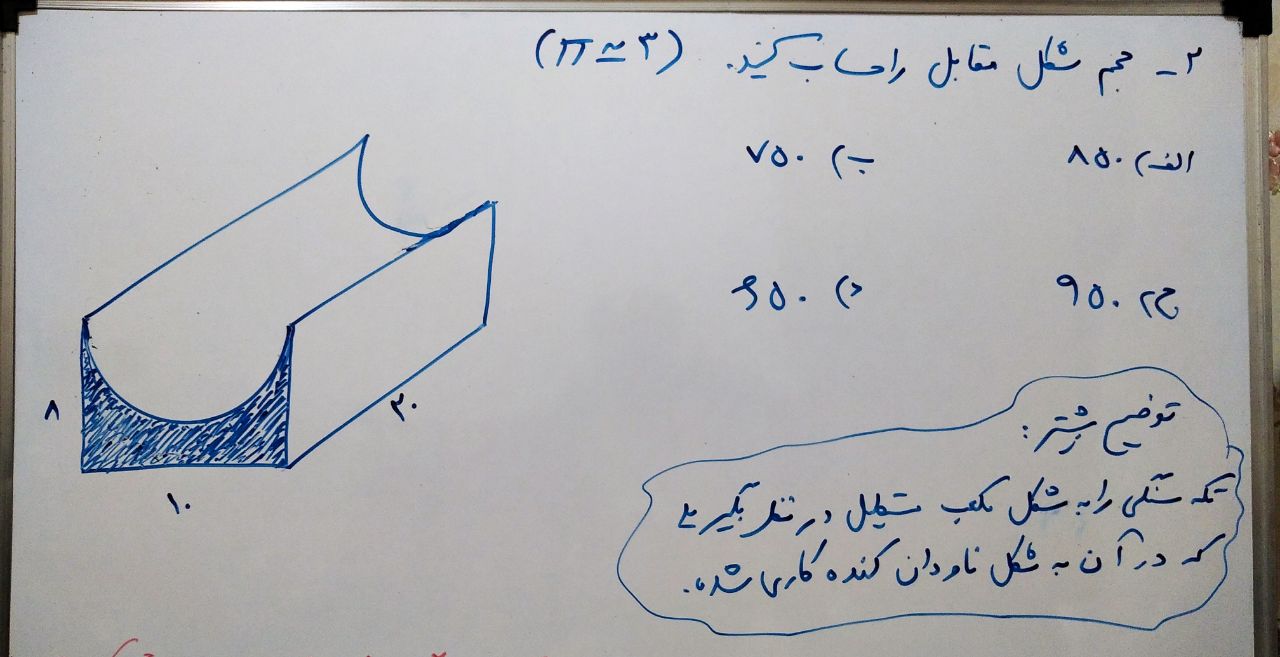 ۲- حجم شکل مقابل را حساب کنید. (π ≃ ۳)
الف) ۸۵۰ ب) ۷۵۰
ج) ۹۵۰ د) ۶۵۰
۸
۲۰
۱۰
توضیح بیشتر:
تکه سنگی را به شکل مکعب مستطیل در نظر بگیرید
که در آن به شکل ناودان کنده کاری شده.